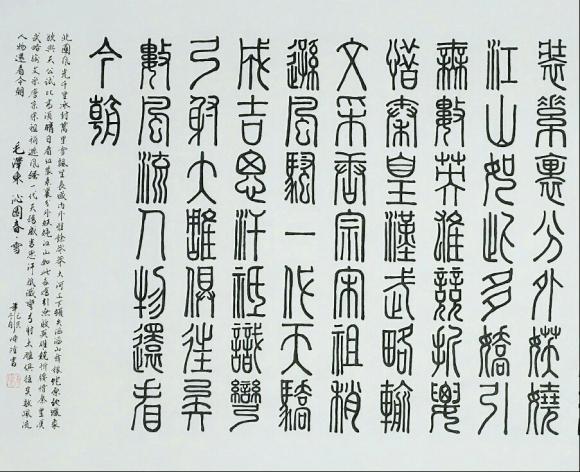 裝素裹分外妖嬈
江山如此多嬌引
無數英雄競折腰
惜秦皇漢武略輸
文采唐宗宋祖稍
遜風騷一代天驕
成吉思汗祇識彎
弓射大雕俱往矣
數風流人物還看
今朝
北國風光千里冰封萬里雪飄望長城內外惟餘莽莽大河上下頓失滔滔山舞銀蛇原馳蠟象
欲與天公試比高須晴日看紅裝素裹分外妖嬈江山如此多嬌引無數英雄競折腰惜秦皇漢
武略輸文采唐宗宋祖稍遜風騷一代天驕成吉思汗祇識彎弓射大雕俱往矣數風流
人物還看今朝
毛澤東 沁園春·雪
書